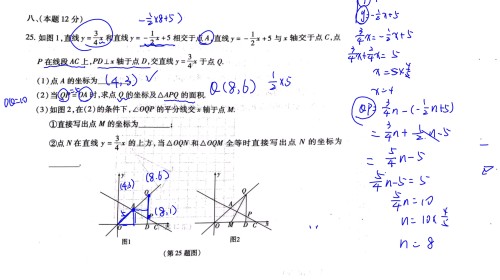 八、(本题12分)
-½x+5)
25. 如图1,直线y=3/4x和直线y=-1/2x+5相交于点A,直线y=-1/2x+5与x轴交于点C,点
P在线段AC上,PD⊥x轴于点D,交直线y=3/4x于点Q.
(1)点A的坐标为 (4,3) ✓
Q(8,6) ½x5
(2)当QP=OA时,求点Q的坐标及△APQ的面积.
=5
OQ=10
(3)如图2,在(2)的条件下,∠OQP的平分线交x轴于点M.
①直接写出点M的坐标为;
②点N在直线y=3/4x的上方,当△OQN和△OQM全等时直接写出点N的坐标为
.
(4,3) (8,6)
y
Q
A
5
P (8,1)
O D C x
图1
y
Q
A
P
O M D C x
图2
(第25题图)
y=-½x+5
3/4x=-½x+5
x=4
QP=3/4n-(-½n+5)
=3/4n+½n-5
=5/4n-5
5/4n-5=5
5/4n=10
n=10×4/5
n=8